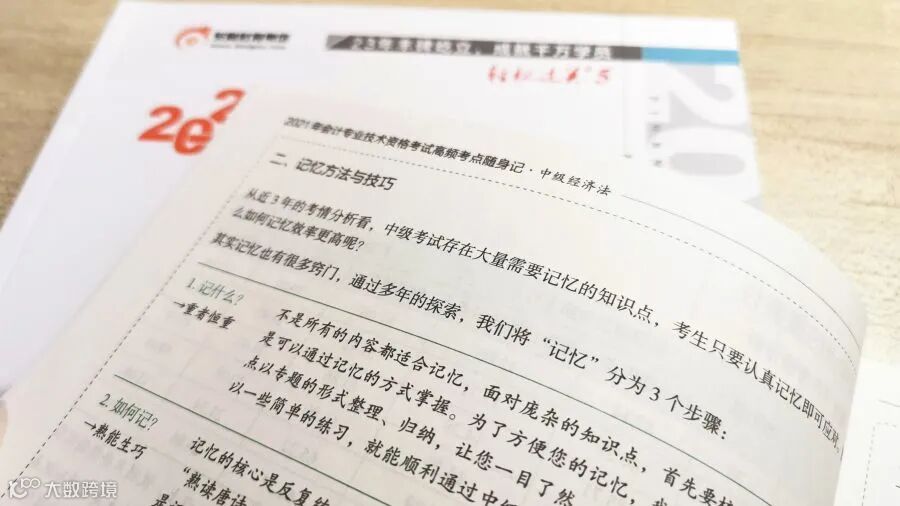 23年专精于此，成就千万学员
轻松过关®5
202
20
2021年会计专业技术资格考试高频考点随身记·中级经济法
二、记忆方法与技巧
从近3年的考情分析看，中级考试存在大量需要记忆的知识点，考生只要认真记忆即可应对，
么如何记忆效率更高呢？
其实记忆也有很多窍门，通过多年的探索，我们将“记忆”分为3个步骤：
1.记什么？
→重者恒重
不是所有的内容都适合记忆，面对庞杂的知识点，首先要
是可以通过记忆的方式掌握。为了方便您的记忆，
点以专题的形式整理、归纳，让您一目了然
以一些简单的练习，就能顺利通过中
2.如何记？
→熟能生巧
记忆的核心是反复练
“熟读唐诗
大数跨境